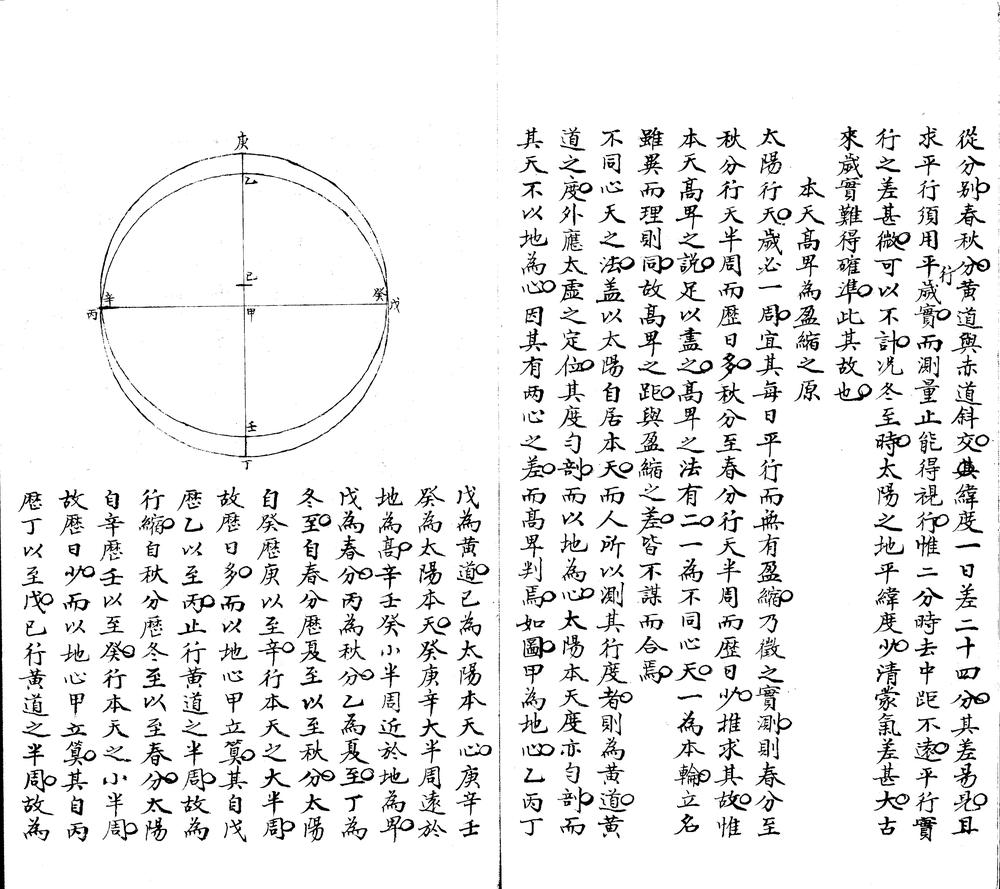 從分别春秋分黄道與赤道斜交其緯度一日差二十四分其差昜見且
求平行須用平行歲實而測量止能得視行惟二分時去中距不逺平行實
行之差甚微可以不計况冬至時太陽之地平緯度少清蒙氣差甚大古
來歲實難得確準此其故也
本天髙畀為盈縮之原
太陽行天歲必一周宜其每日平行而無有盈縮乃徴之實測則春分至
秋分行天半周而歴日多秋分至春分行天半周而歴日少推求其故惟
本天髙畀之説足以盡之髙畀之法有二一為不同心天一為本輪立名
雖異而理則同故髙畀之距與盈縮之差皆不謀而合焉
不同心天之法蓋以太陽自居本天而人所以測其行度者則為黄道黄
道之度外應太虚之定位其度勻剖而以地為心太陽本天度亦勻剖而
其天不以地為心因其有两心之差而髙畀判焉如圖甲為地心乙丙丁
戊為黄道已為太陽本天心庚辛壬
癸為太陽本天癸庚辛大半周逺於
地為髙辛壬癸小半周近於地為畀
戊為春分丙為秋分乙為夏至丁為
冬至自春分歴夏至以至秋分太陽
自癸歴庚以至辛行本天之大半周
故歴日多而以地心甲立算其自戊
歴乙以至丙止行黄道之半周故為
行縮自秋分歴冬至以至春分太陽
自辛歴壬以至癸行本天之小半周
故歴日少而以地心甲立算其自丙
歴丁以至戊已行黄道之半周故為
庚
乙
已
甲
癸
戊
辛
丙
壬
丁